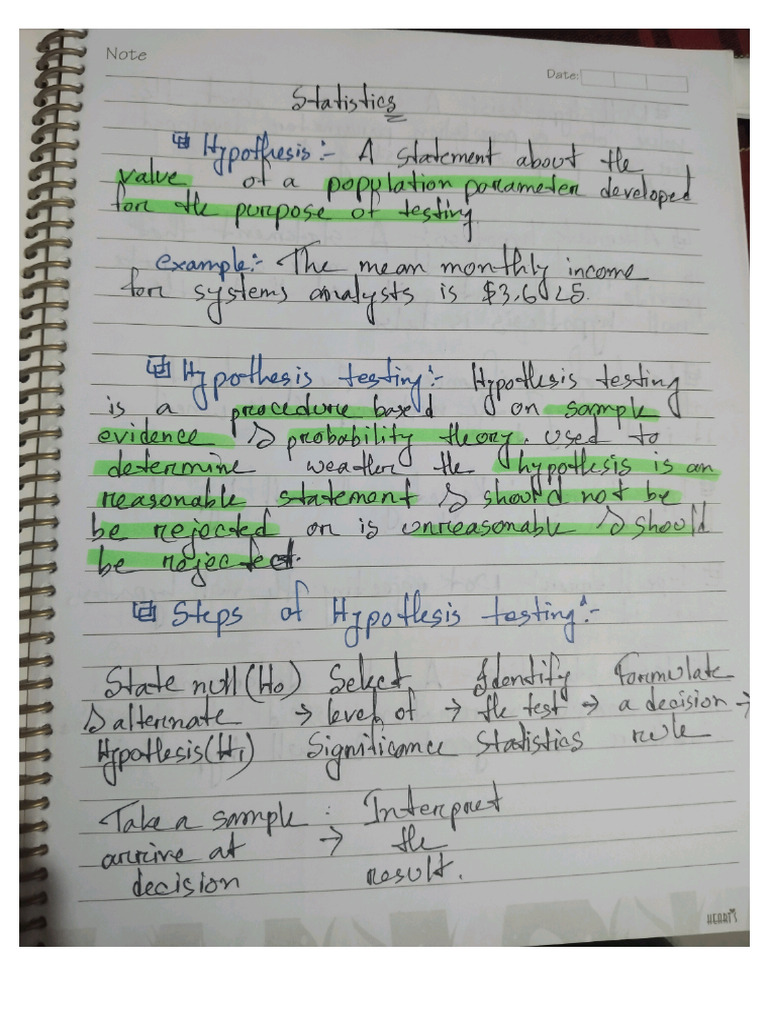 Note
Date:
Statistics
Hypothesis:- A statement about the
value of a population parameter developed
for the purpose of testing.
example:- The mean monthly income
for systems analysts is $3,625.
Hypothesis testing:- Hypothesis testing
is a procedure based on sample
evidence & probability theory. used to
determine weather the hypothesis is an
reasonable statement & should not be
be rejected or is unreasonable & should
be rejected.
Steps of Hypothesis testing:-
State null (H₀) Select Identify Formulate
& alternate → level of → the test → a decision →
Hypothesis (H₁) Significance Statistics rule
Take a sample : Interpret
arrive at → the
decision result.
HEARTS